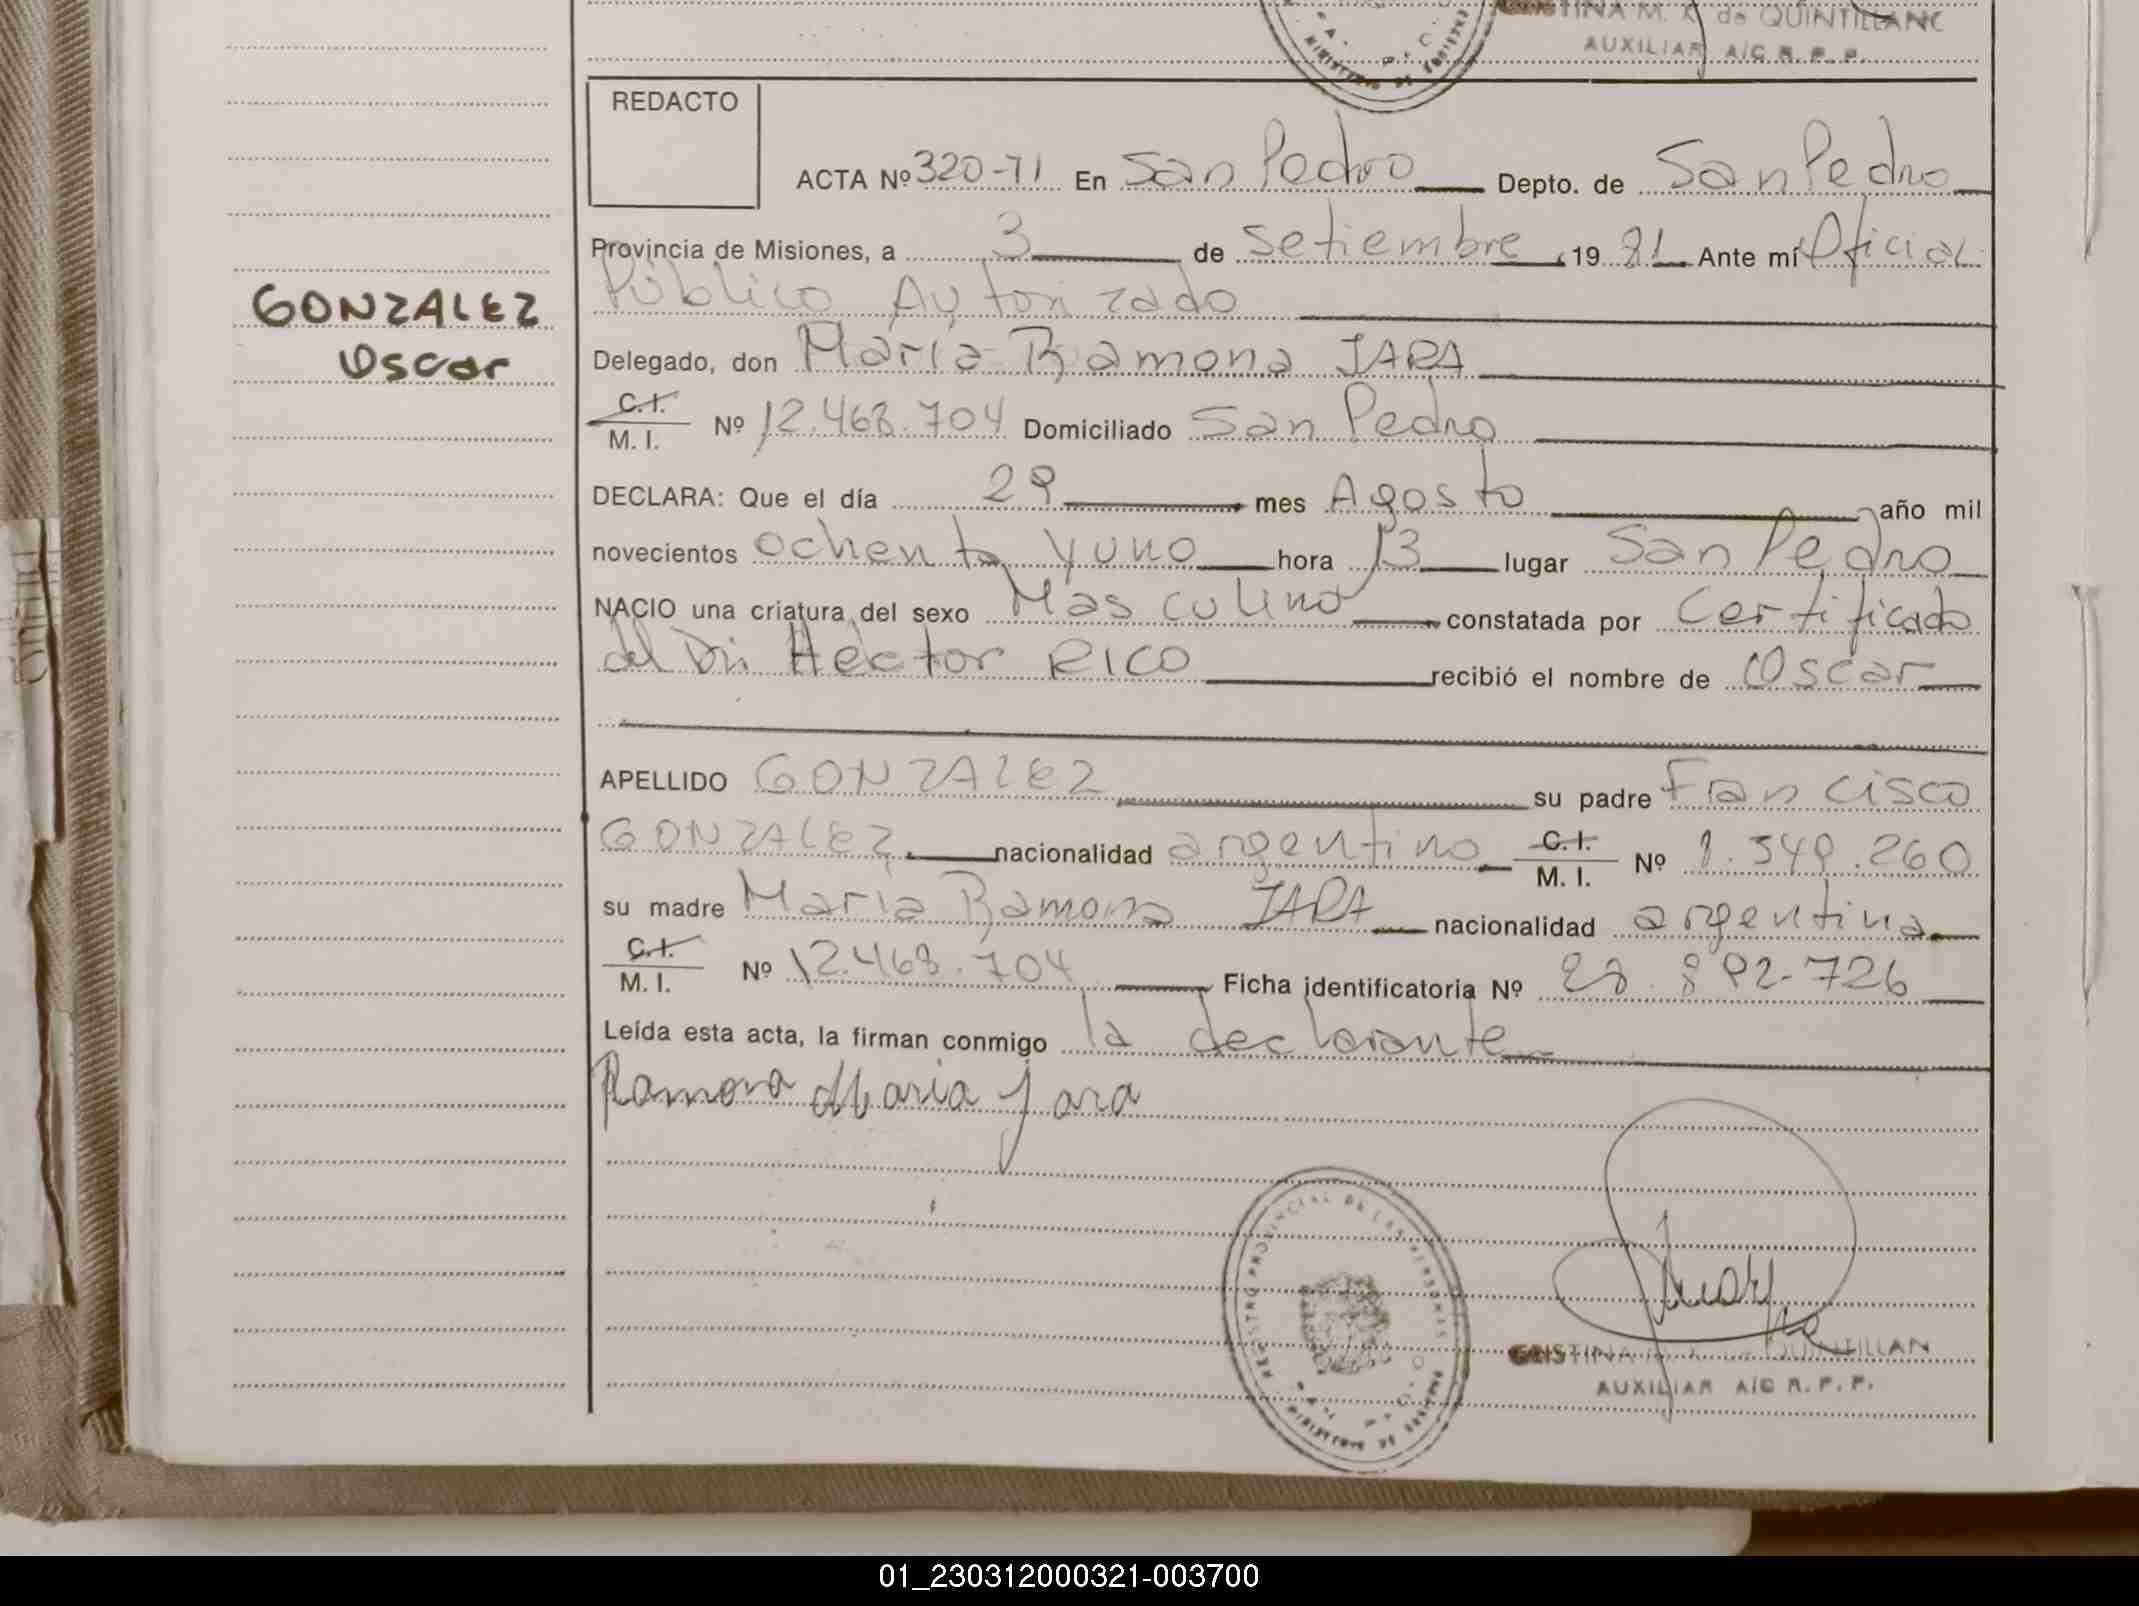 CRISTINA M. K. de QUINTILLANO
AUXILIAR A/C R. P. P.
REDACTO
ACTA Nº 320-71 En San Pedro Depto. de San Pedro
Provincia de Misiones, a 3 de Setiembre 19 81 Ante mí Oficial
Público Autorizado
GONZALEZ
Oscar
Delegado, don Maria Ramona JARA
C. I. / M. I. Nº 12.468.704 Domiciliado San Pedro
DECLARA: Que el día 29 mes Agosto año mil
novecientos ochenta y uno hora 13 lugar San Pedro
NACIO una criatura del sexo Masculino constatada por Certificado
del Dr. Hector RICO recibió el nombre de Oscar
APELLIDO GONZALEZ su padre Francisco
GONZALEZ nacionalidad argentino C. I. / M. I. Nº
su madre Maria Ramona JARA nacionalidad argentina
C. I. / M. I. Nº 12.468.704 Ficha identificatoria Nº 28.892-726
Leída esta acta, la firman conmigo la declarante
Ramona Maria Jara
REGISTRO PROVINCIAL DE LAS PERSONAS
MINISTERIO DE GOBIERNO
CRISTINA M. K. de QUINTILLAN
AUXILIAR A/C R. P. P.
01_230312000321-003700